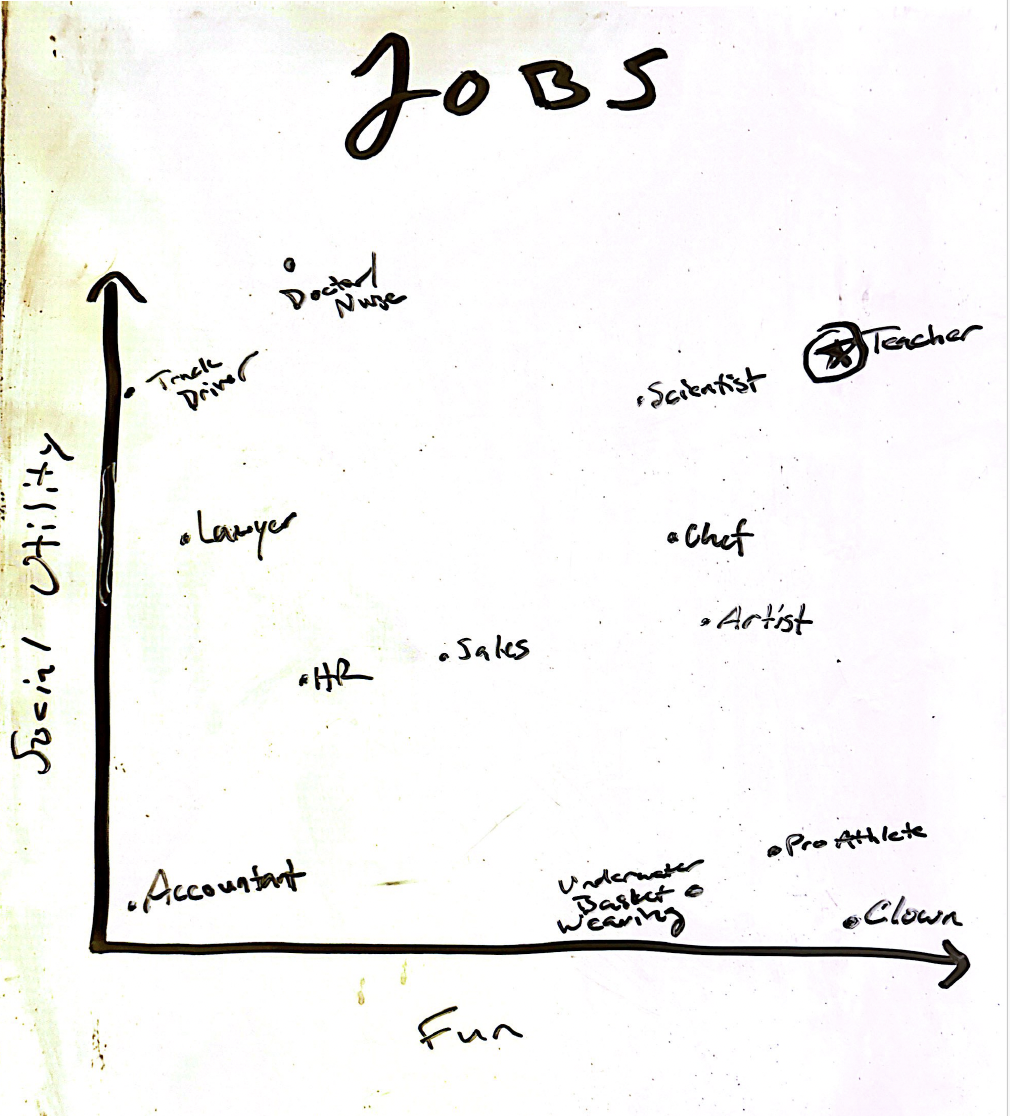 JOBS
Doctor/
Nurse
Teacher
Truck
Driver
Scientist
Social Utility
Lawyer
Chef
Artist
Sales
HR
Pro Athlete
Accountant
Underwater
Basket
Weaving
Clown
Fun